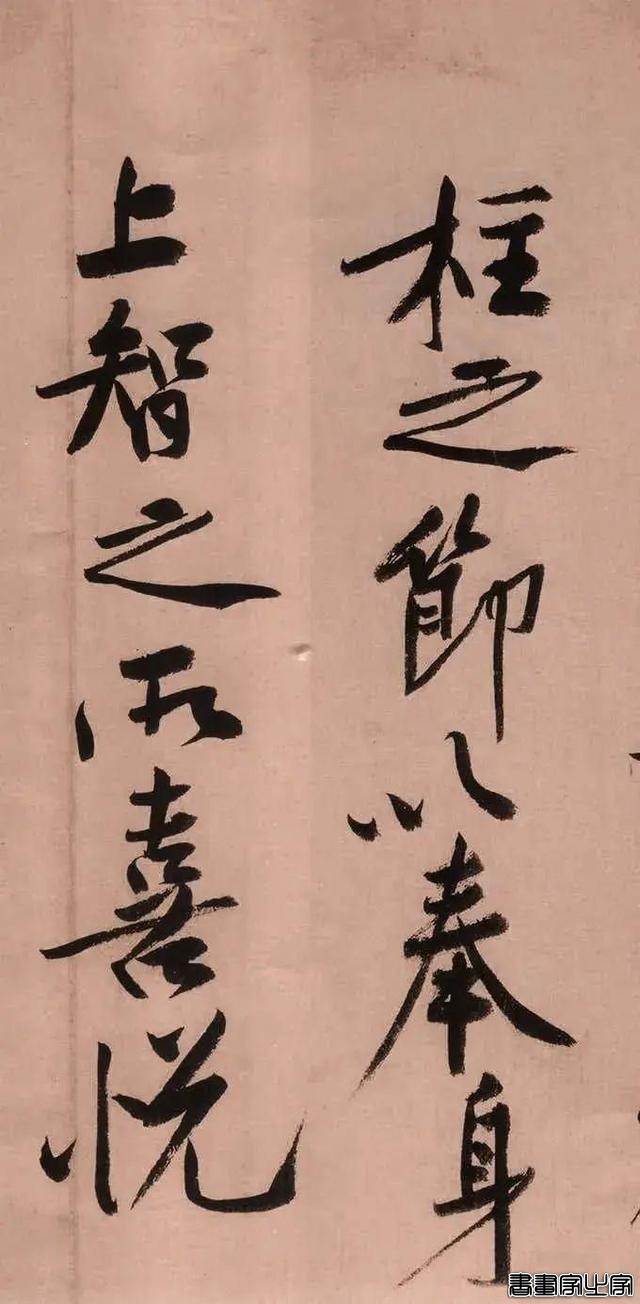 柱之節以奉身
上智之所喜悅
書畫家之家